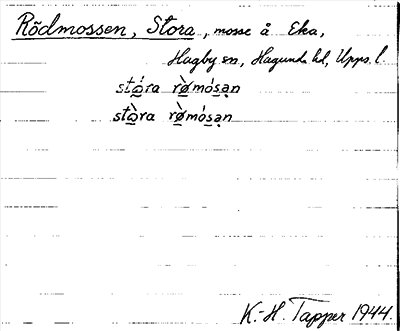 Rödmossen, Stora, mosse å Eka,
Hagby sn, Hagunda hd, Upps. l.
stó̲ra rø̲̀mó̲sa̲n
stò̲ra rø̲̀mó̲sa̲n
K.-H. Tapper 1944.